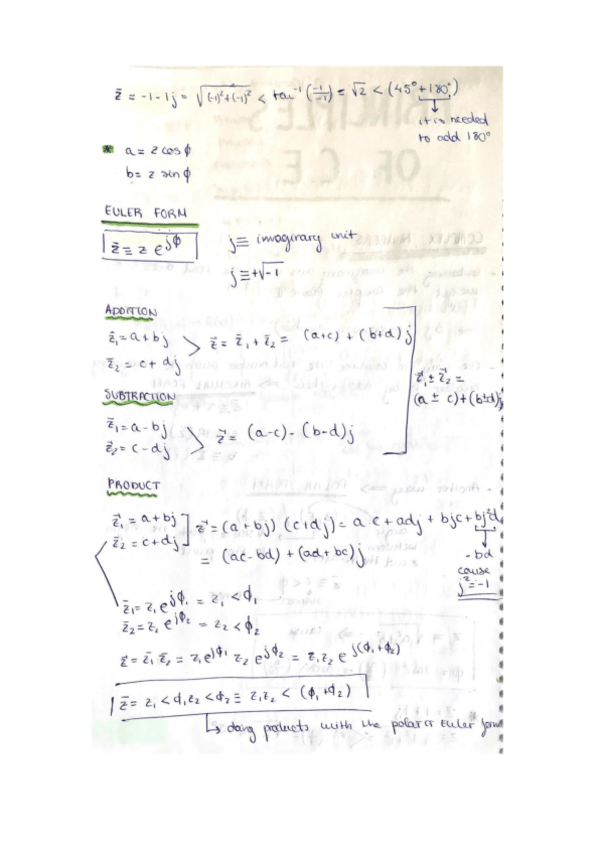 z̄ = -1-1j = √((-1)²+(-1)²) < tan⁻¹(-1/-1) = √2 < (45°+180°)
it is needed
to add 180°
* a = z cos ϕ
b = z sin ϕ
EULER FORM
z̄ ≡ z e^jϕ
j ≡ imaginary unit
j ≡ +√-1
ADDITION
z̄₁ = a+bj
z̄₂ = c+dj
z̄ = z̄₁ + z̄₂ = (a+c) + (b+d)j
z̄₁ ± z̄₂ =
(a ± c)+(b±d)j
SUBTRACTION
z̄₁ = a-bj
z̄₂ = c-dj
z̄ = (a-c)-(b-d)j
PRODUCT
z̄₁ = a+bj
z̄₂ = c+dj
z̄ = (a+bj)(c+dj) = a c + adj + bjc + bj²d
= (ac-bd) + (ad+bc)j
-bd
cause
j²=-1
z̄₁ = z₁e^jϕ₁ = z₁ < ϕ₁
z̄₂ = z₂e^jϕ₂ = z₂ < ϕ₂
z̄ = z̄₁ z̄₂ = z₁e^jϕ₁ z₂e^jϕ₂ = z₁z₂e^j(ϕ₁+ϕ₂)
z̄ = z₁<ϕ₁z₂<ϕ₂ ≡ z₁z₂ < (ϕ₁+ϕ₂)
↳ doing products with the polar or Euler form